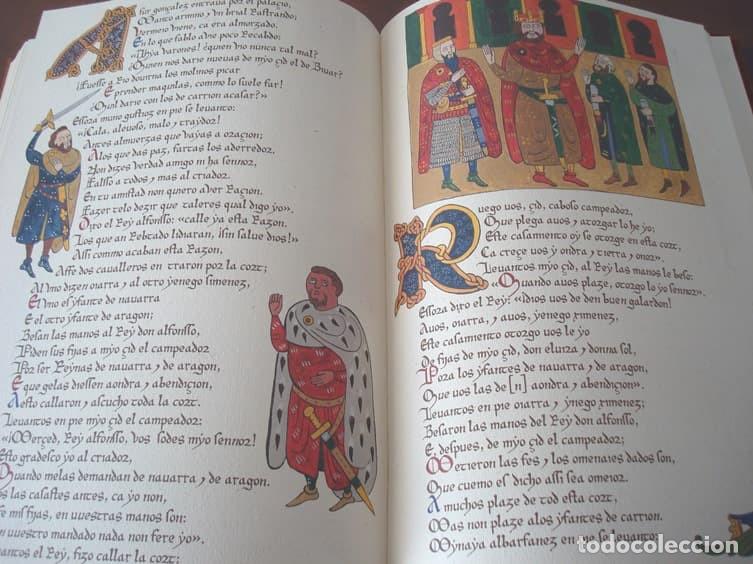 Asur gonçalez entraua por el palaçio,
Manto armino y un brial Rastrando;
Vermeio viene, ca era almorzado.
En lo que fablo ave poco Recabdo:
«¡Hya varones! ¿quien vio nunca tal mal?
¿Quien nos darie nueuas de myo çid el de Bivar?
¡Fuesse a Rio dourna los molinos picar
E prender maquilas, commo lo suele far!
¿Quil darie con los de carrion acasar?»
Essora muno gustioz en pie se levanto:
«¡Cala, alevoso, malo y traydor!
Antes almuerzas que bayas a oraçion;
Alos que das paz, fartas los aderredor.
Non dizes verdad amigo ni ha sennor,
Fallso a todos y mas al criador.
En tu amistad non quiero aver Raçion.
Fazer telo dezir que tal eres qual digo yo».
Dixo el Rey alfonsso: «calle ya esta Razon.
Los que an Rebtado lidiaran, ¡sin salve dios!»
Assi commo acaban esta Razon,
Affe dos cavalleros en traron por la cort;
Al vno dizen oiarra y al otro yenego simenez,
E vno es yfante de nauarra
E el otro yfante de aragon;
Besan las manos al Rey don alfonsso,
Piden sus fijas a myo çid el campeador
Por ser Reynas de nauarra y de aragon,
E que gelas diessen aondra y abendiçion,
Aesto callaron y ascucho toda la cort.
Levantos en pie myo çid el campeador:
«¡Merçed, Rey alfonsso, vos sodes myo sennor!
Esto gradesco yo al criador,
Quando melas demandan de nauarra y de aragon.
Vos las casastes antes, ca yo non,
Afe mis fijas, en vuestras manos son:
Sin vuestro mandado nada non fere yo».
Levantos el Rey, fizo callar la cort:
Ruego uos, çid, caboso campeador,
Que plega auos, y atorgar lo he yo;
Este casamiento oy se otorge en esta cort,
Ca creçe uos y ondra y tierra y onor».
Levantos myo çid, al Rey las manos le beso:
«Quando auos plaze, otorgolo yo sennor».
Essora dixo el Rey: «¡Dios uos de den buen galardon!
Auos, oiarra, y auos, yenego ximenez,
Este casamiento otorgo uos le yo
De fijas de myo çid, don eluira y donna sol,
Pora los yfantes de nauarra y de aragon,
Que uos las de [n] aondra y abendiçion».
Levantos en pie oiarra, y ynego ximenez;
Besaron las manos del Rey don alfonsso,
E, despues, de myo çid el campeador;
Metieron las fes y los omenaies dados son,
Que cuemo es dicho assi sea omeior.
A muchos plaze de tod esta cort,
Mas non plaze alos yfantes de carrion.
Mynaya albarfanez en pie se levanto:
todocoleccion